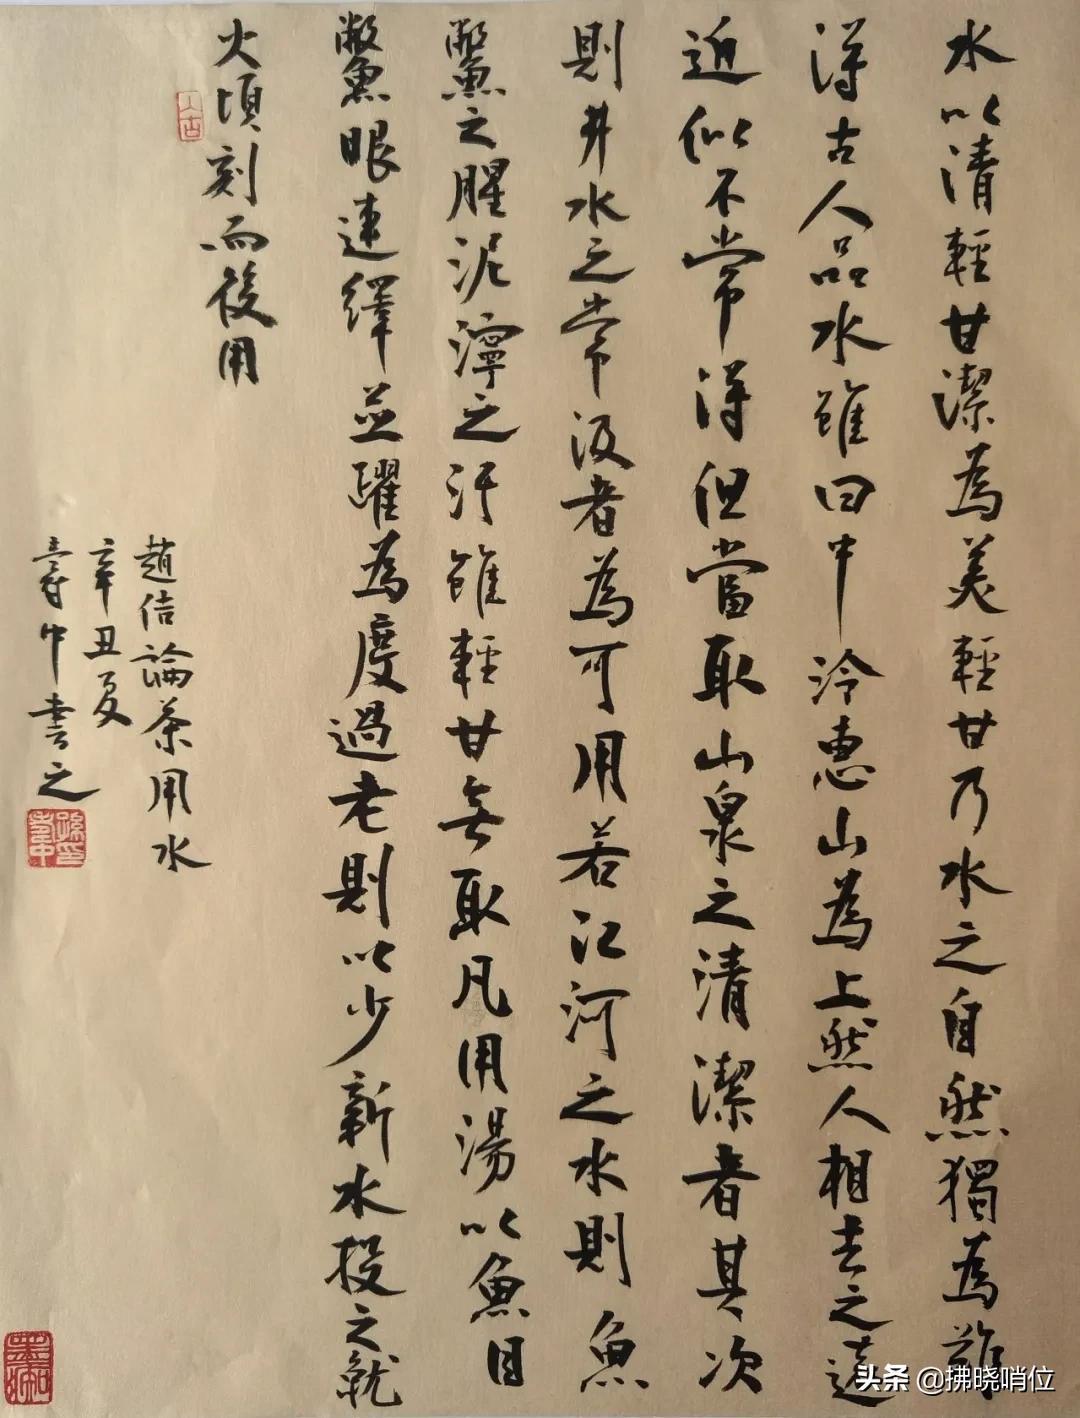 水以清輕甘潔為美輕甘乃水之自然獨為難
得古人品水雖曰中泠惠山為上然人相去之遠
近似不常得但當取山泉之清潔者其次
則井水之常汲者為可用若江河之水則魚
鱉之腥泥濘之汙雖輕甘無取凡用湯以魚目
鱉魚眼連繹並躍為度過老則以少新水投之就
火頃刻而後用
趙佶論茶用水
辛丑夏
壽中書之
头条 @拂晓哨位